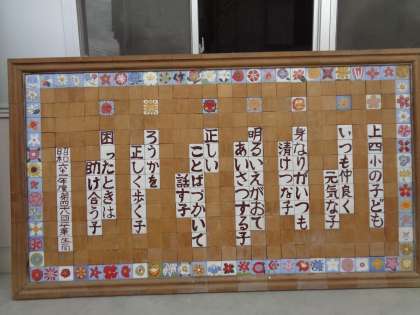 上四小の子ども
いつも仲良く
元気な子
身なりがいつも
清けつな子
明るいえがおで
あいさつする子
正しい
ことばづかいで
話す子
ろうかを
正しく歩く子
困ったときは
助け合う子